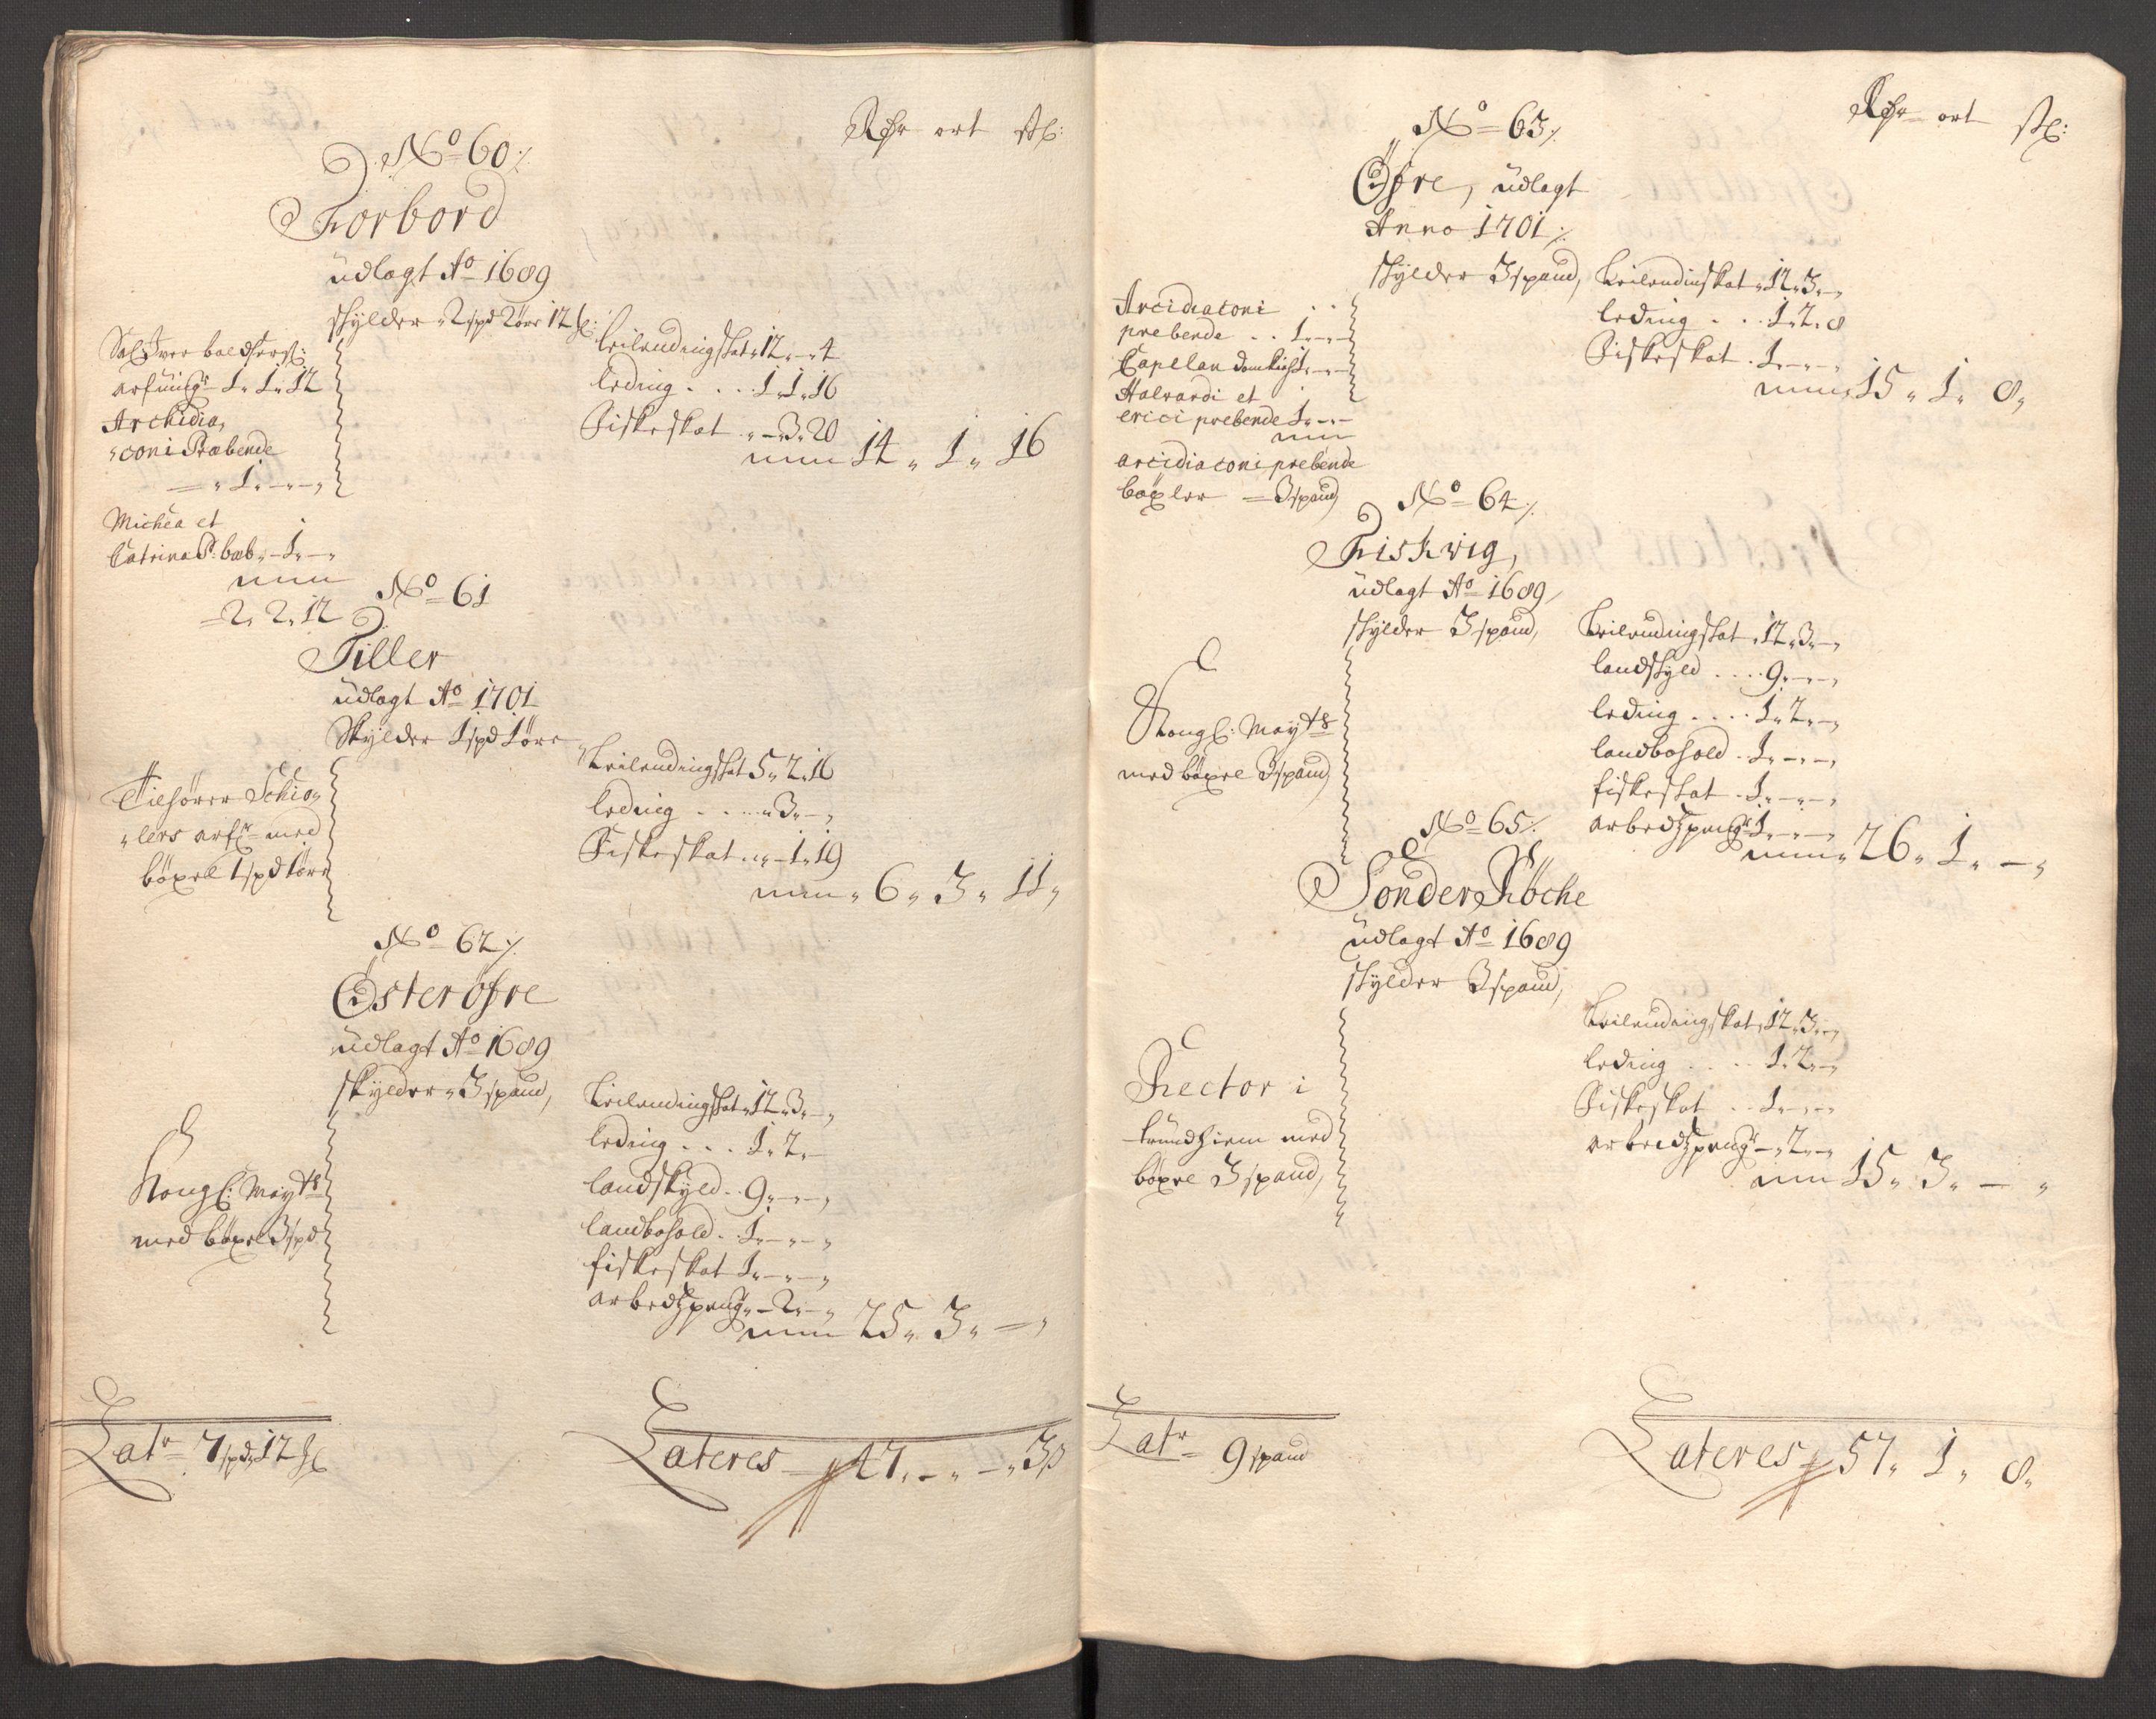 Rdr ort sk:
No 60 ./.
Forbord
üdlagt Ao 1689
skylder 2 spd 2 öre 12 sl:
Sal: Iver baltzers:
arfuing: 1. 1. 12
Archidia,
"coni Præbende
= " 1. - - ,
Michea et
Catrina P: bæb. - 1. - "
mm
= 2. 2. 12
Leilendingskat " 12. - 4
leding . . . . 1. 1. 16
Fiskeskat " - 3. 20
mm 14 " 1 " 16
No 61
Tiller
üdlagt Ao 1701
Skylder 1 spd 1 öre
Tilhörer Schiø,
"lers arf: med
böxel 1 spd 1 öre
Leilendingskat 5. 2. 16
leding . . . . " 3. - ,
Fiskeskat . . " - 1. 19
mm " 6 " 3 " 11 ,
No 62 ./.
Österöfre
üdlagt Ao 1689
skylder " 3 spand,
Kongl: Mayts
med böxel 3 spd
Leilendingskat " 12. 3. - ,
leding . . . 1. 2. -
landskyld . . 9. - - ,
landbohold . . 1. - - ,
fiskeskat 1. - - ,
arbedzpeng: - 2. - ,
mm 25 " 3 " - ,
Latr 7 spd. 12 sl
Lateres 47. - " - " 3 ß
Rdr ort sk:
No 63 ./.
Öfre, üdlagt
Anno 1701 ./.
skylder 3 spand,
Arcidiaconi
prebende . . 1. - -
Capellan domkirch 1. - -
Halvardi et
erici prebende 1. - -
mm
arcidiaconi prebende
böxler = 3 spand,
Leilendinskat " 12. 3. - ,
leding . . . 1. 2. 8
Fiskeskat . 1. - - ,
mm 15 " 1 " 8 ,
No 64 ./.
Fiskvig,
üdlagt Ao 1689,
skylder 3 spand,
Kongl: Mayts
med böxel 3 spand,
Leilendingskat " 12. 3. - ,
landskyld . . . . 9. - - ,
leding . . . . 1. 2. - ,
landbohold . 1. - - ,
fiskeskat . 1. - - ,
arbedzpeng: 1. - - ,
mm " 26 " 1 " - ,
No 65 ./.
Sonder Röche
üdlagt Ao 1689
skylder 3 spand,
Rector i
trundhiem med
böxel 3 spand,
Leilendingskat " 12. 3. - ,
leding . . . . 1. 2. - ,
Fiskeskat . . 1. - - -
arbeidzpeng: - " 2. - ,
mm 15 " 3 " - "
Latr 9 spand
Lateres 57 " 1 " 8 "